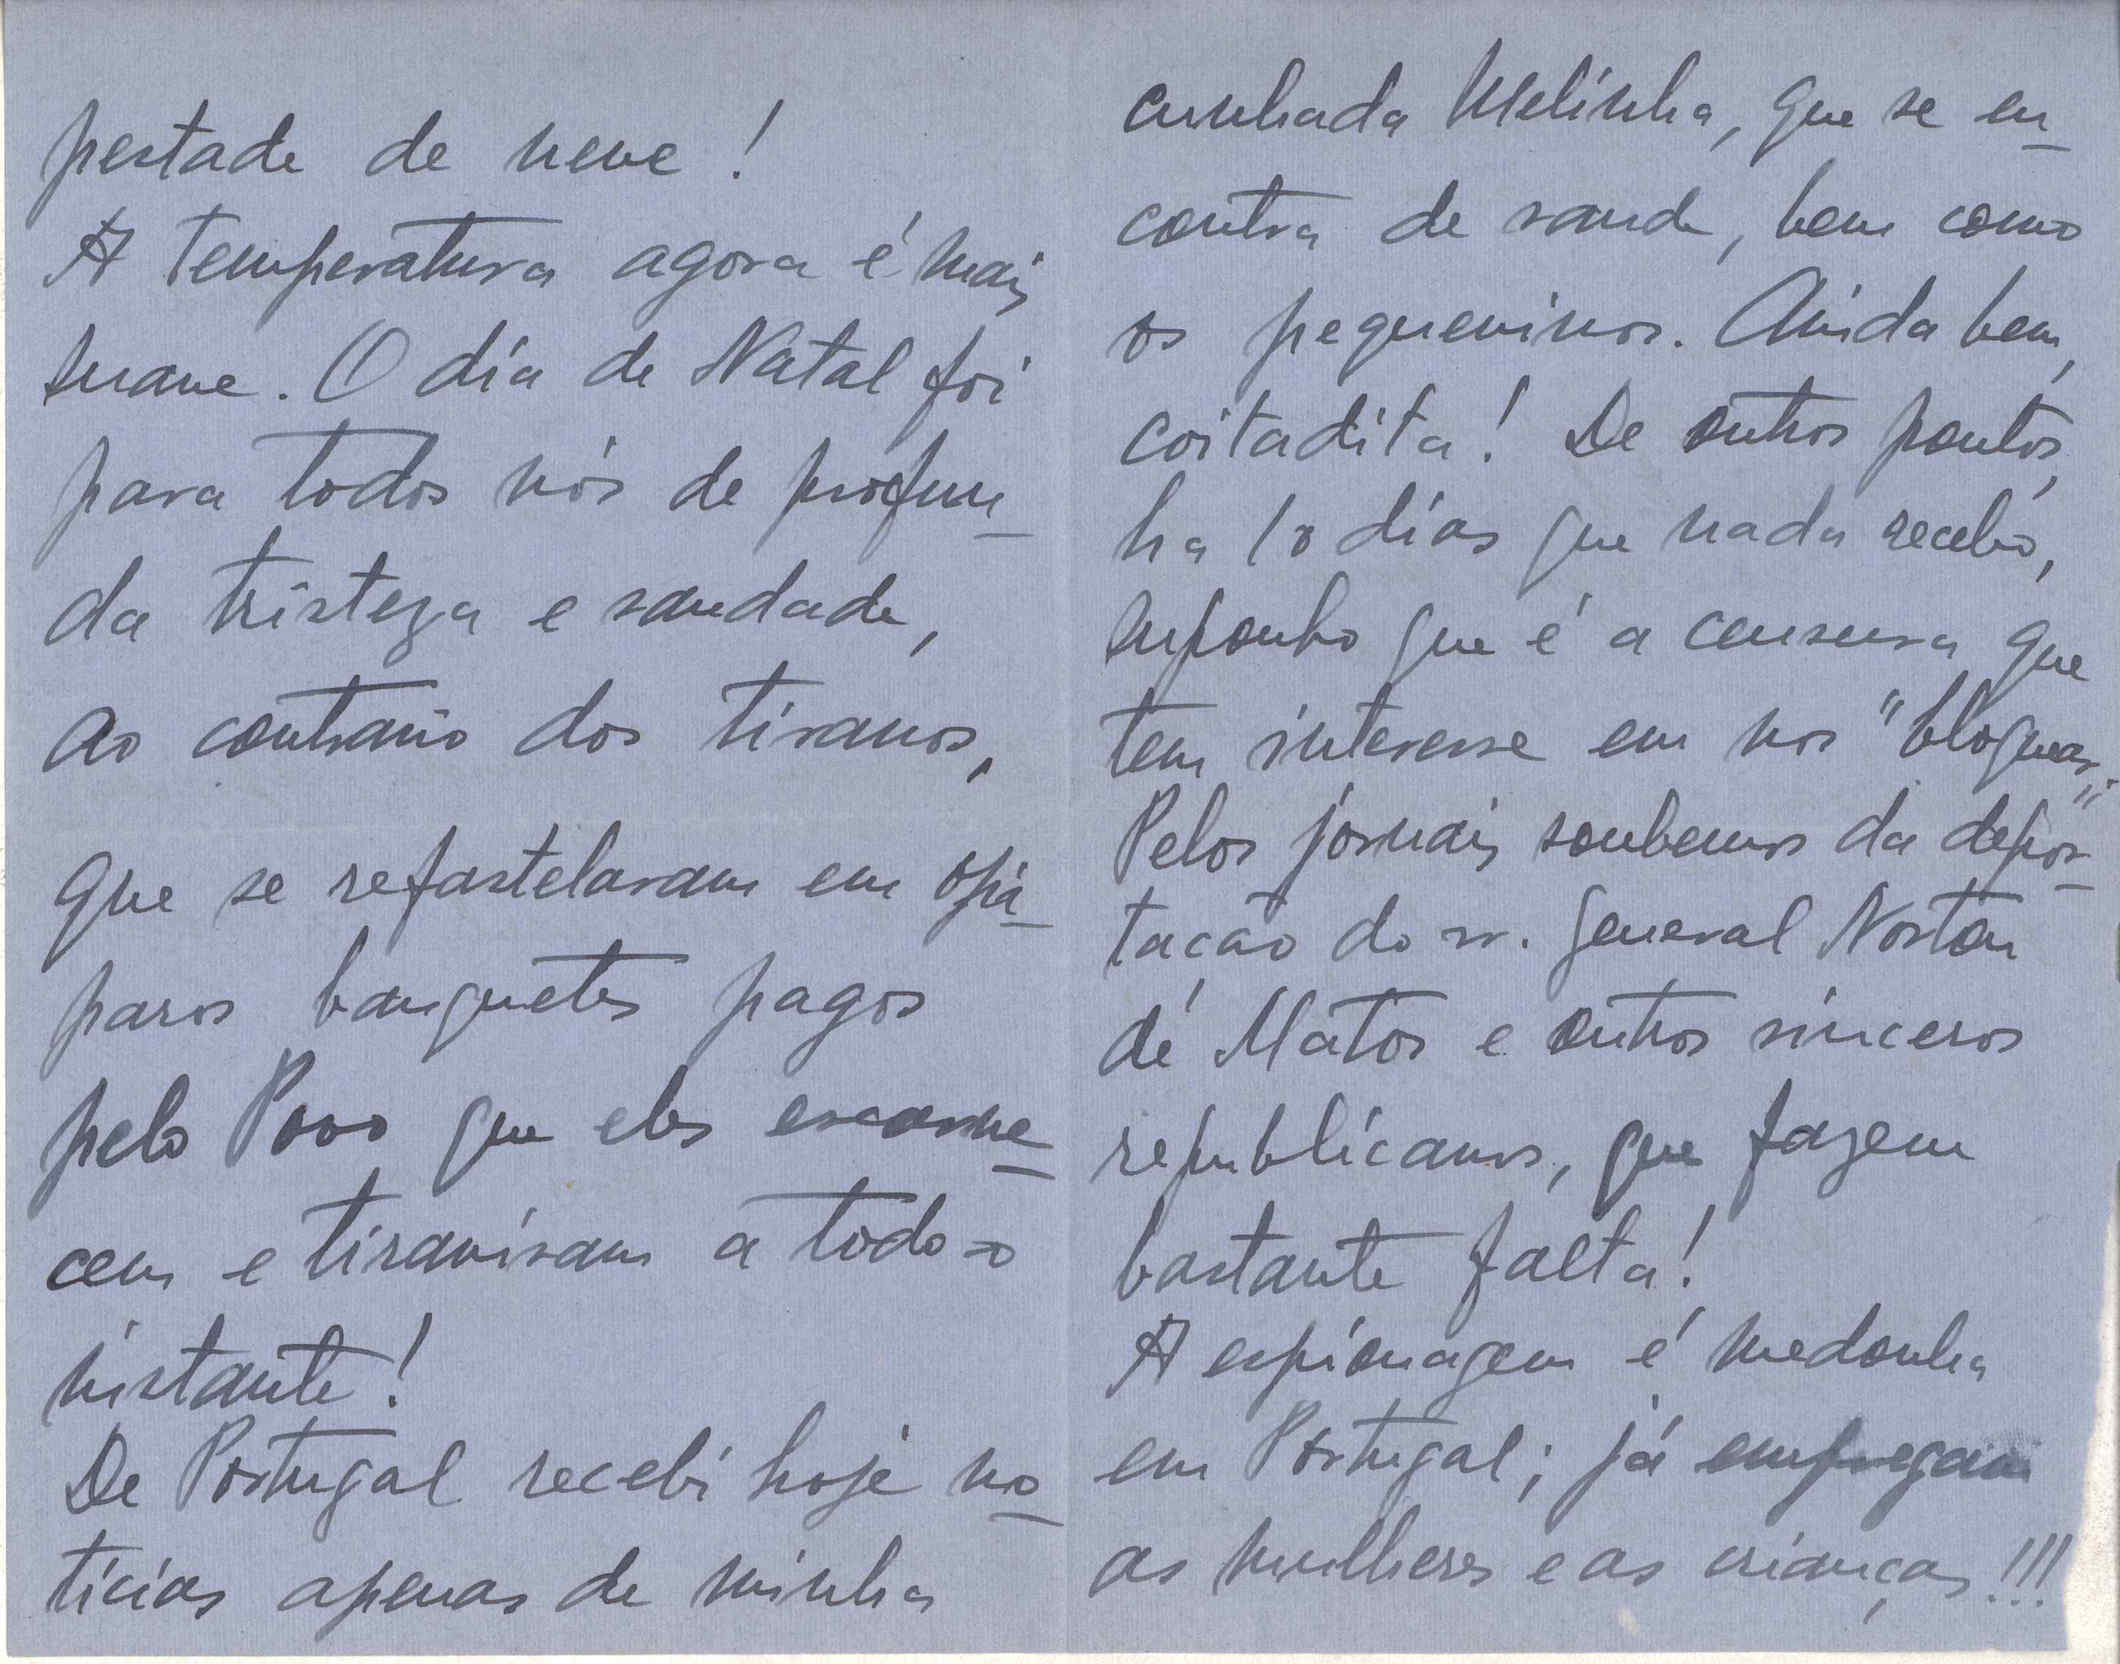 pestade de neve!
A temperatura agora é mais
suave. O dia de Natal foi
para todos nós de profun-
da tristeza e saudade,
ao contrario dos tiranos,
que se refastelavam em opi-
paros banquetes pagos
pelo Povo que eles escarne-
cem e tiranisam a todo-o
instante!
De Portugal recebi hoje no-
ticias apenas de minha
cunhada Melinha, que se en-
contra de saude, bem como
os pequeninos. Ainda bem,
coitadita! De outros pontos,
ha 10 dias que nada recebo,
suponho que é a censura que
tem interesse em nos "bloquear".
Pelos jornais soubemos da depor-
tacão do sr. general Norton
de Matos e outros sinceros
republicanos, que fazem
bastante falta!
A espionagem é medonha
em Portugal; já empregam
as mulheres e as crianças!!!